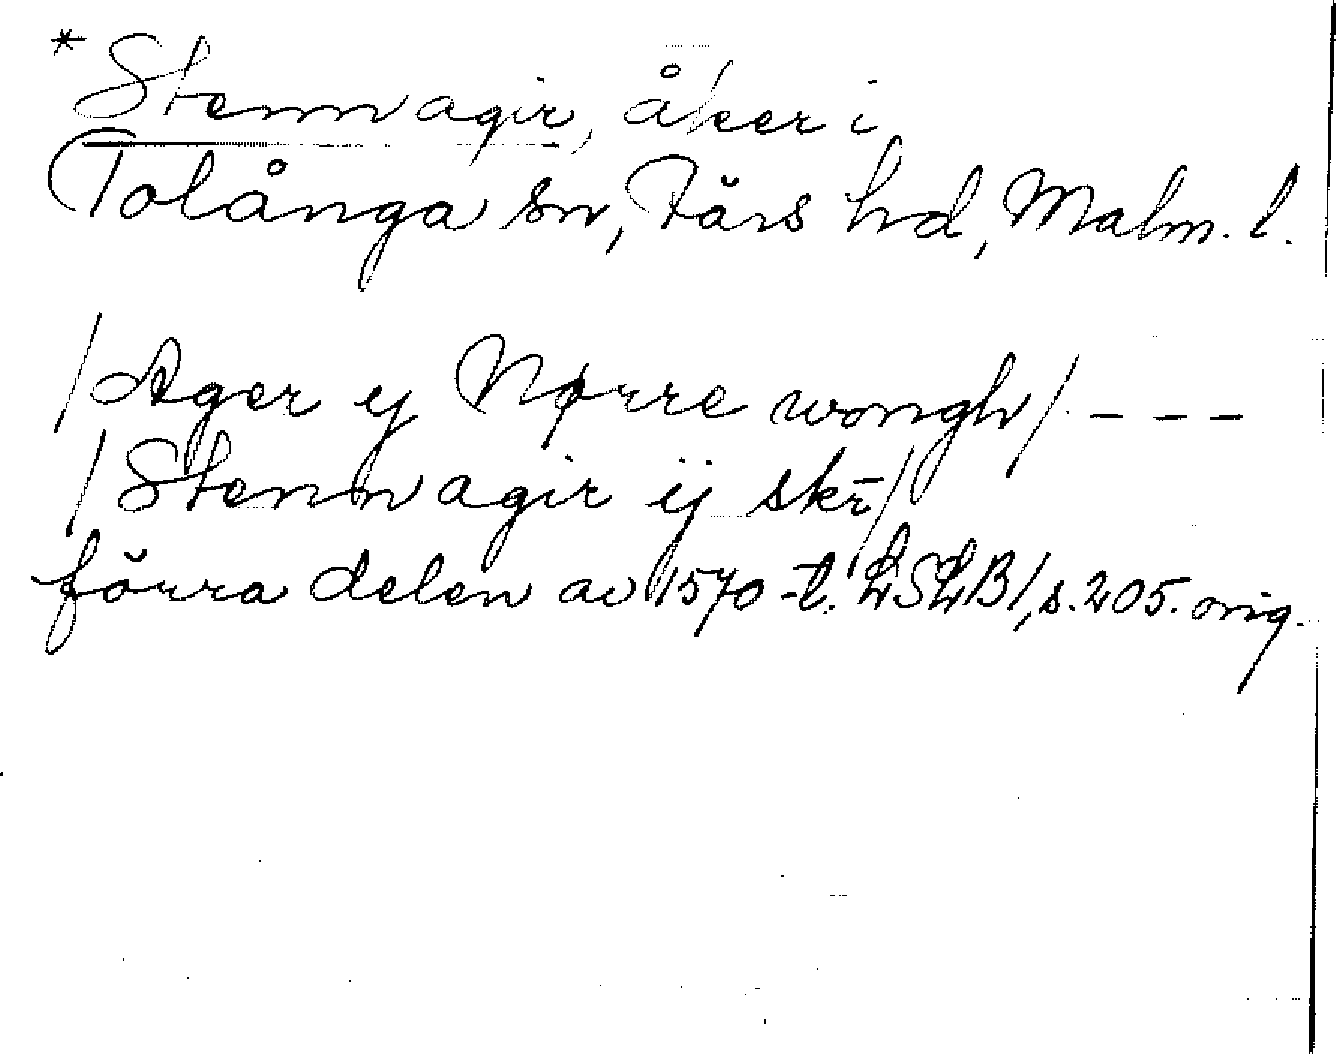 * Stenn agir, åker i
Tolånga sn, Färs hd, Malm. l.
/Ager ij Nørre wongh/ - - -
/Stenn agir ij skr̄/
förra delen av 1570-t. LSLB1, s. 205. orig.